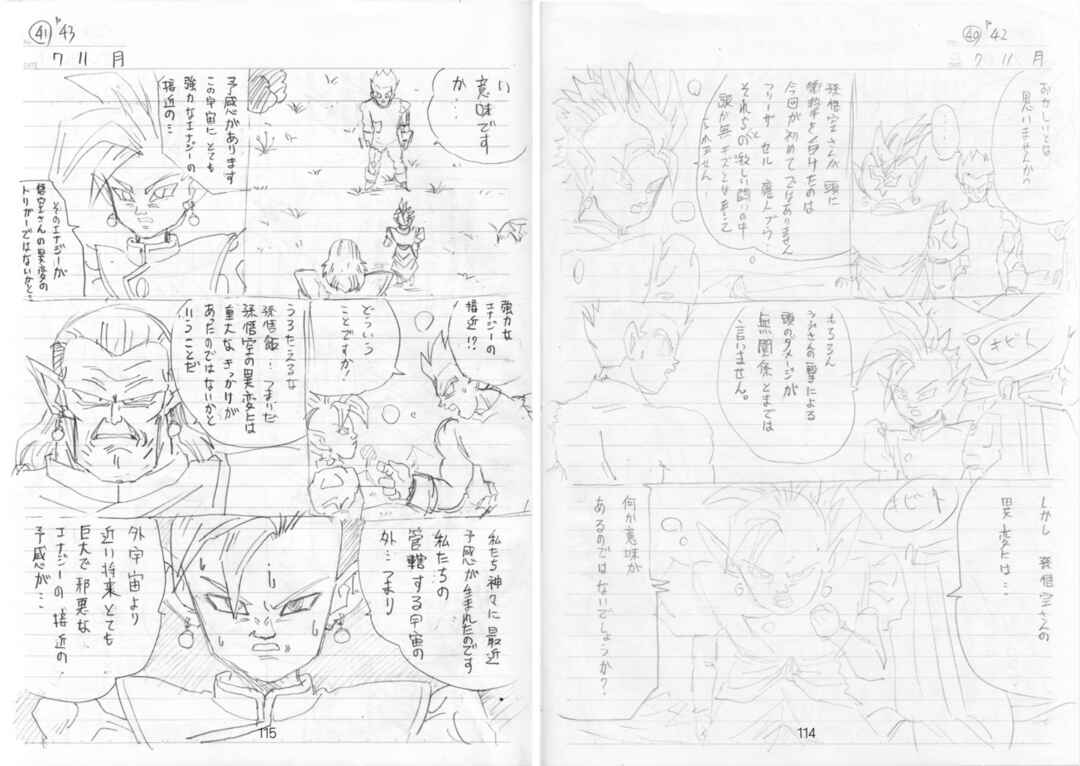 ㊵ '42
7 11 月
おかしいとは
思いませんか?
……
孫悟空さんが 頭に
衝撃を受けたのは
今回が初めてではありません
フリーザ セル 魔人ブウ…
それらとの激しい闘いの中
頭が無キズとは
もちろん
撃による
頭のダメージが
無関係とまでは
言いません。
しかし 孫悟空さんの
異変は…
何か意味が
あるのではないでしょうか?
114
㊶ '43
7 11 月
い
意味です
か…
予感があります
この宇宙に とても
強力なエナジーの
接近の…
そのエナジーが
悟空さんの異変の
トリガーではないかと。
強力な
エナジーの
接近!?
どういう
ことですか!
うろたえるな
孫悟飯… つまりだ
孫悟空の異変は
重大なきっかけが
あったのではないかと
いうことだ
私たち神々に最近
予感が生まれたのです
私たちの
管轄する宇宙の
外… つまり
外宇宙より
近い将来とても
巨大で邪悪な
エナジーの接近の
予感が…
115